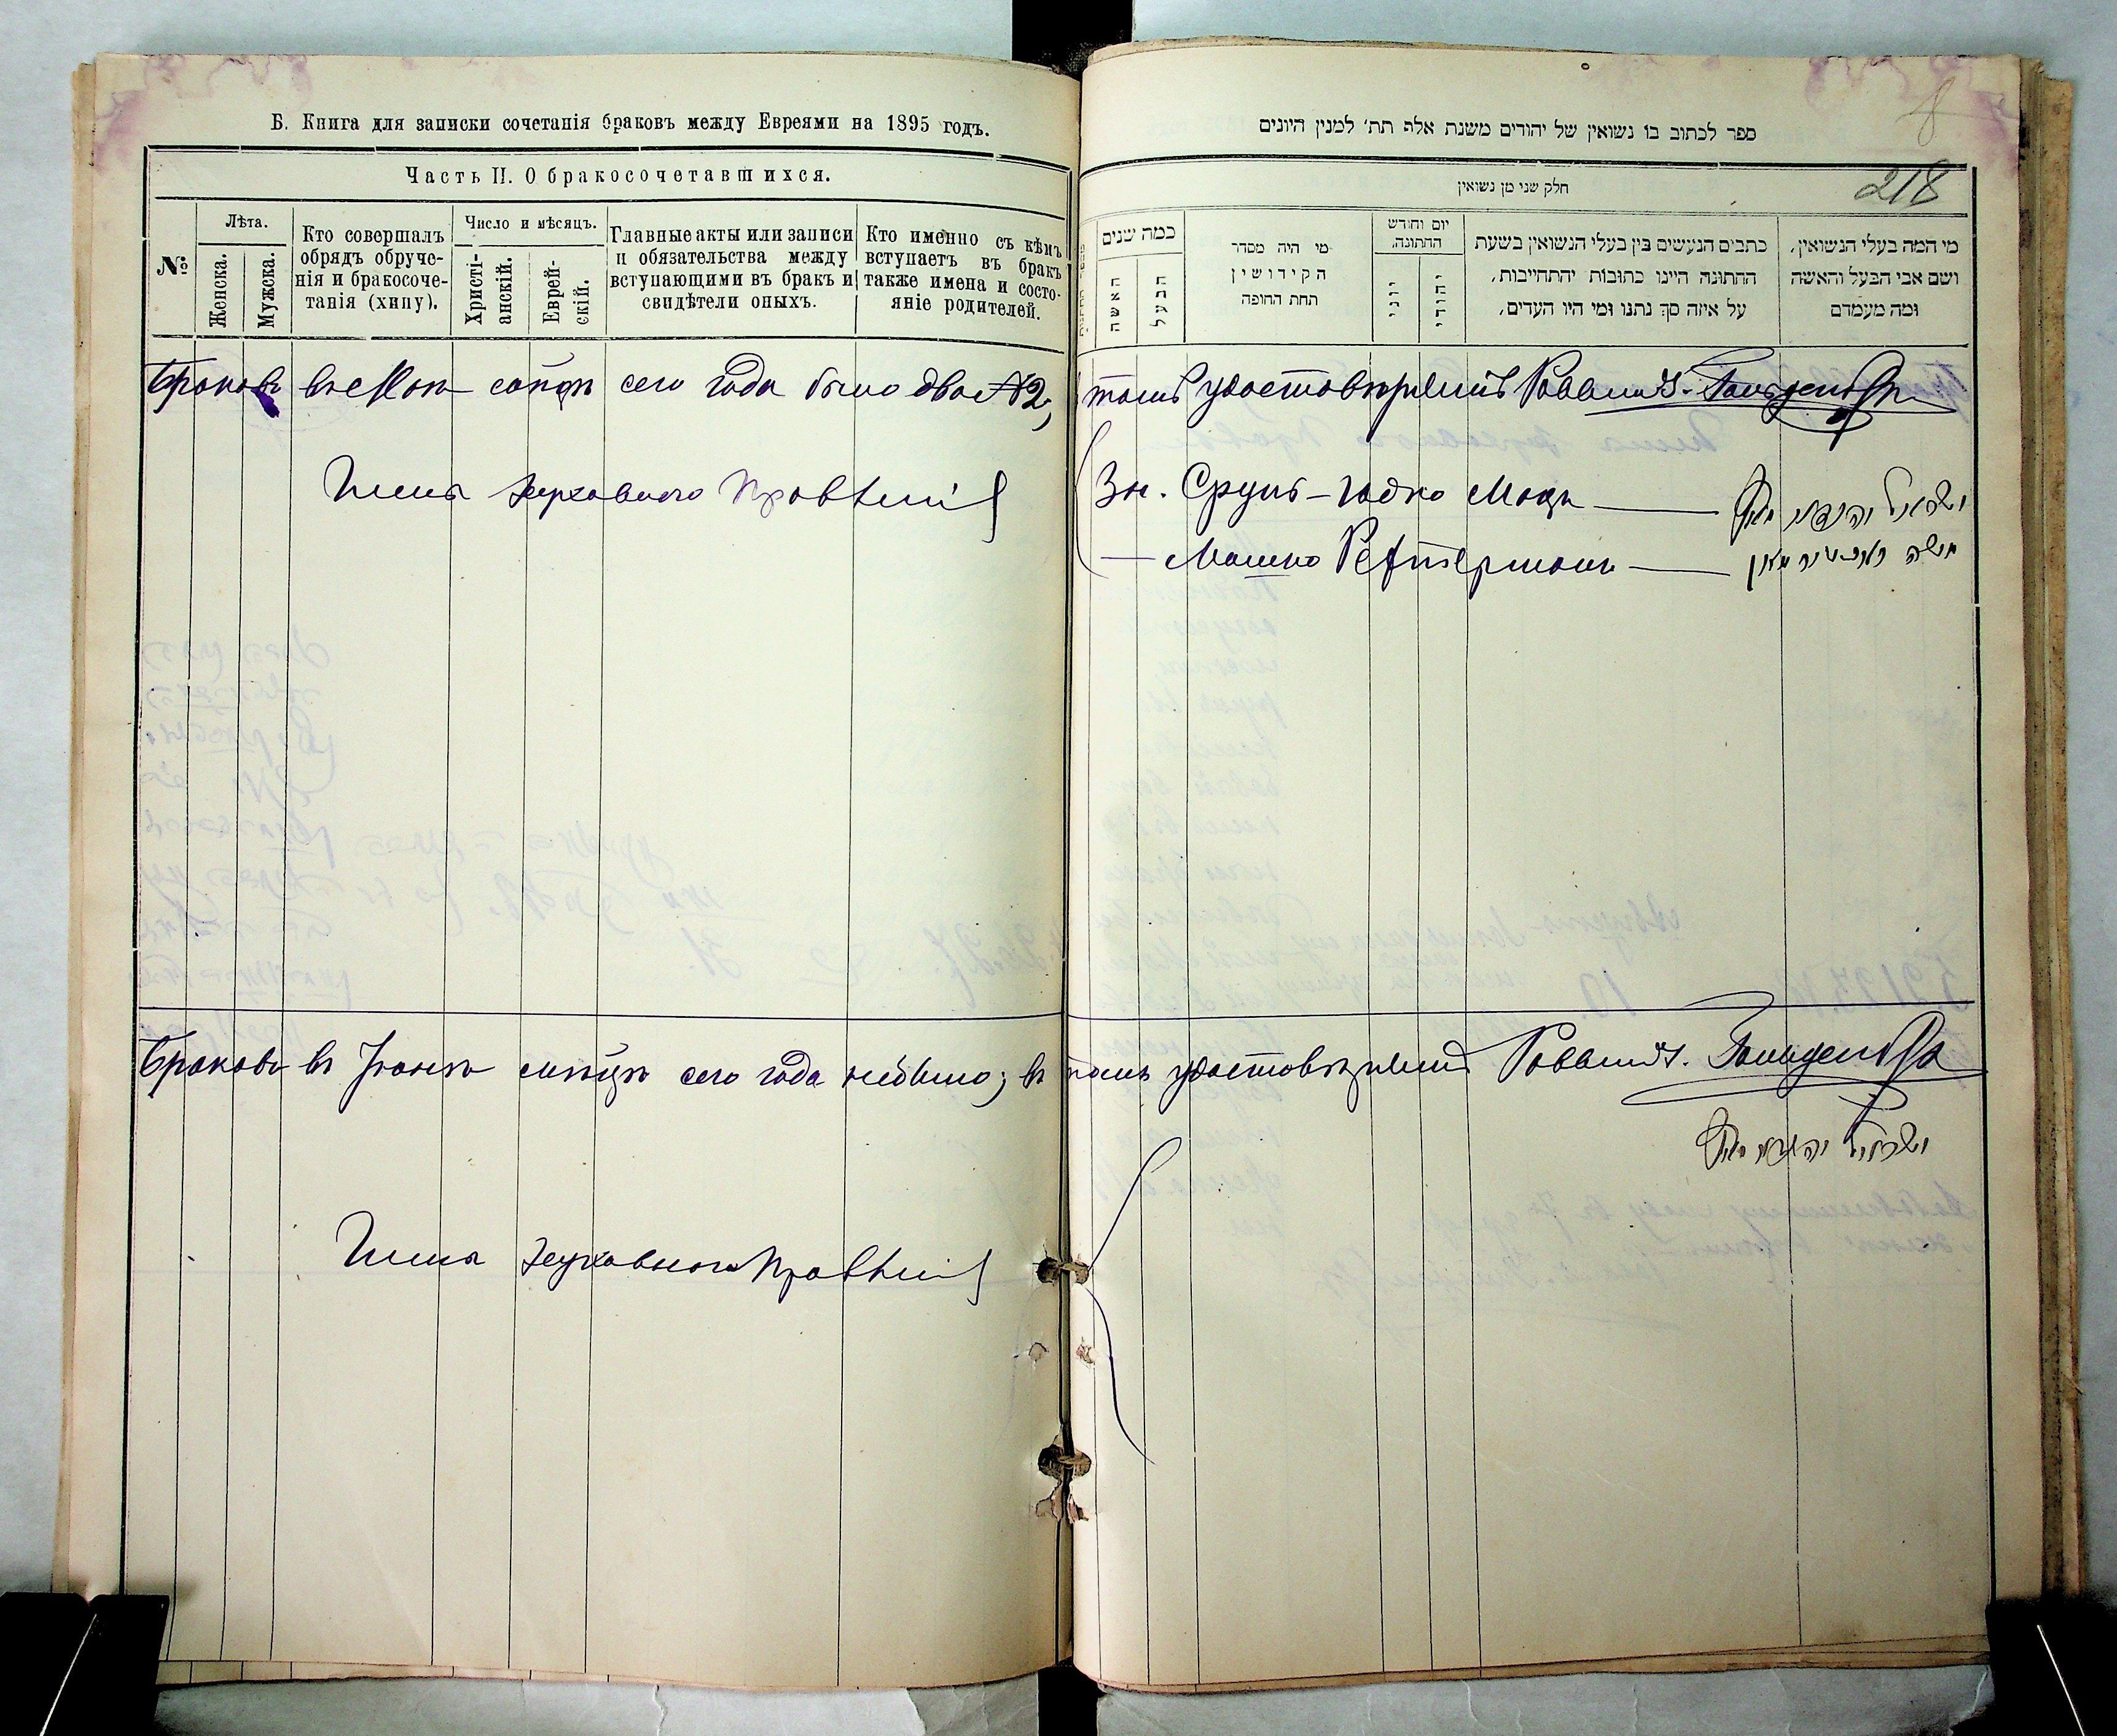 Б. Книга для записки сочетанія браковъ между Евреями на 1895 годъ.
Часть II. О бракосочетавшихся.
№
Лѣта.
Женска.
Мужска.
Кто совершалъ
обрядъ обруче-
нія и бракосоче-
танія (хипу).
Число и мѣсяцъ.
Христі-
анскій.
Еврей-
скій.
Главные акты или записи
и обязательства между
вступающими въ бракъ и
свидѣтели оныхъ.
Кто именно съ кѣмъ
вступаетъ въ бракъ
также имена и состо-
яніе родителей.
ספר לכתוב בו נשואין של יהודים משנת אלף תת׳ למנין היונים
8
218
חלק שני מן נשואין
כמה שנים
האשה
הבעל
מי היה מסדר
הקידושין
תחת החופה
יום וחודש
החתונה.
יוני
יהודי
כתבים הנעשים בין בעלי הנשואין בשעת
החתונה היינו כתובות יהתחייבות,
על איזה סך נתנו ומי היו העדים,
מי המה בעלי הנשואין,
ושם אבי הבעל והאשה
ומה מעמדם
Браковъ въ Маѣ сего года было два №2,
томъ удостовѣряемъ Раввинъ
Члены Духовнаго Правленія
Зн. Сруль-
Мошко
ישראל
משה
Браковъ въ Іюнѣ мѣсяцѣ сего года небыло; въ томъ удостовѣряемъ Раввинъ
ישראל
Члены Духовнаго Правленія